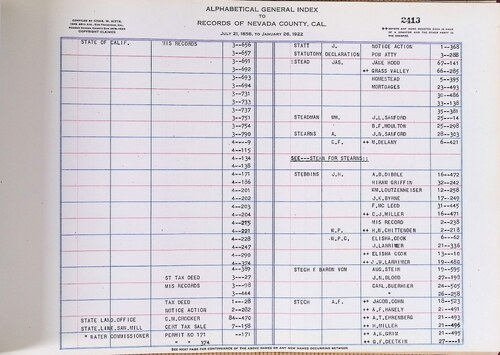 ALPHABETICAL GENERAL INDEX
TO
RECORDS OF NEVADA COUNTY, CAL.
JULY 21, 1856, TO JANUARY 28, 1922
COPYRIGHT CLAIMED
2413
STATE OF CALIF. MIS RECORDS 3--656
3--657
3--691
3--692
3--693
3--694
3--731
3--743
3--751
3--754
3--790
4---9
4--115
4--134
4--138
4--171
4--186
4--201
4--202
4--203
4--204
4--215
4--221
4--228
4--247
4--290
4--324
4--389
ST TAX DEED 3--27
MIS RECORDS 3--98
3--444
TAX DEED 1--28
NOTICE ACTION 2--282
STATE LAND, OFFICE C,W,CROCKER 84--470
STATE, LINE, SAW, MILL CERT TAX SALE 7--158
" WATER COMMISSIONER PERMIT NO 171 --171
" " 374
STATE J. NOTICE ACTION 1--368
STATUTORY DECLARATION POW ATTY 3--288
STEAD JAS. JANE HODD 67--141
++ GRASS VALLEY 66--285
HOMESTEAD 5--395
MORTGAGES 23--493
30--486
33--138
35--381
STEADMAN WM. J.L.SANFORD 25---14
B.F.MOULTON 25--298
STEARNS A. J.N.SANFORD 28--303
C.F. ++ M.DELANY 6--421
SEE---STEHN FOR STEARNS::
STEBBINS J.H. A.B.DIBBLE 16--472
HIRAM GRIFFIN 32--242
WM.LOUTZENHEISER 12--258
J.E.BYRNE 17--249
F.MC LEOD 31--445
++ C.J.MILLER 16--471
MIS RECORD 2--238
W.P. ++ H.H.CHITTENDEN 2--218
W.P.C. ELISHA,COOK 6---62
J.LARRIMER 21--336
++ ELISHA COOK 13---10
++ J.W.LARRIMER 19--480
STECH F BARON VON AUG.STEIN 19--595
J.N.BLOOD 27--198
CARL,BUERHIER 24--505
" 26--258
STECH A.F. ++ JACOB,COHN 18--523
++ A,F,HAGELY 2--491
++ A,T,EHRENBERG 21--493
++ H,MILLER 21--496
++ A,H,GRIM 21--495
++ G,F,DEETKIN 27----1
SEE NEXT PAGE FOR CONTINUANCE OF THE ABOVE NAMES OR ANY NEW NAMES OCCURRING BETWEEN